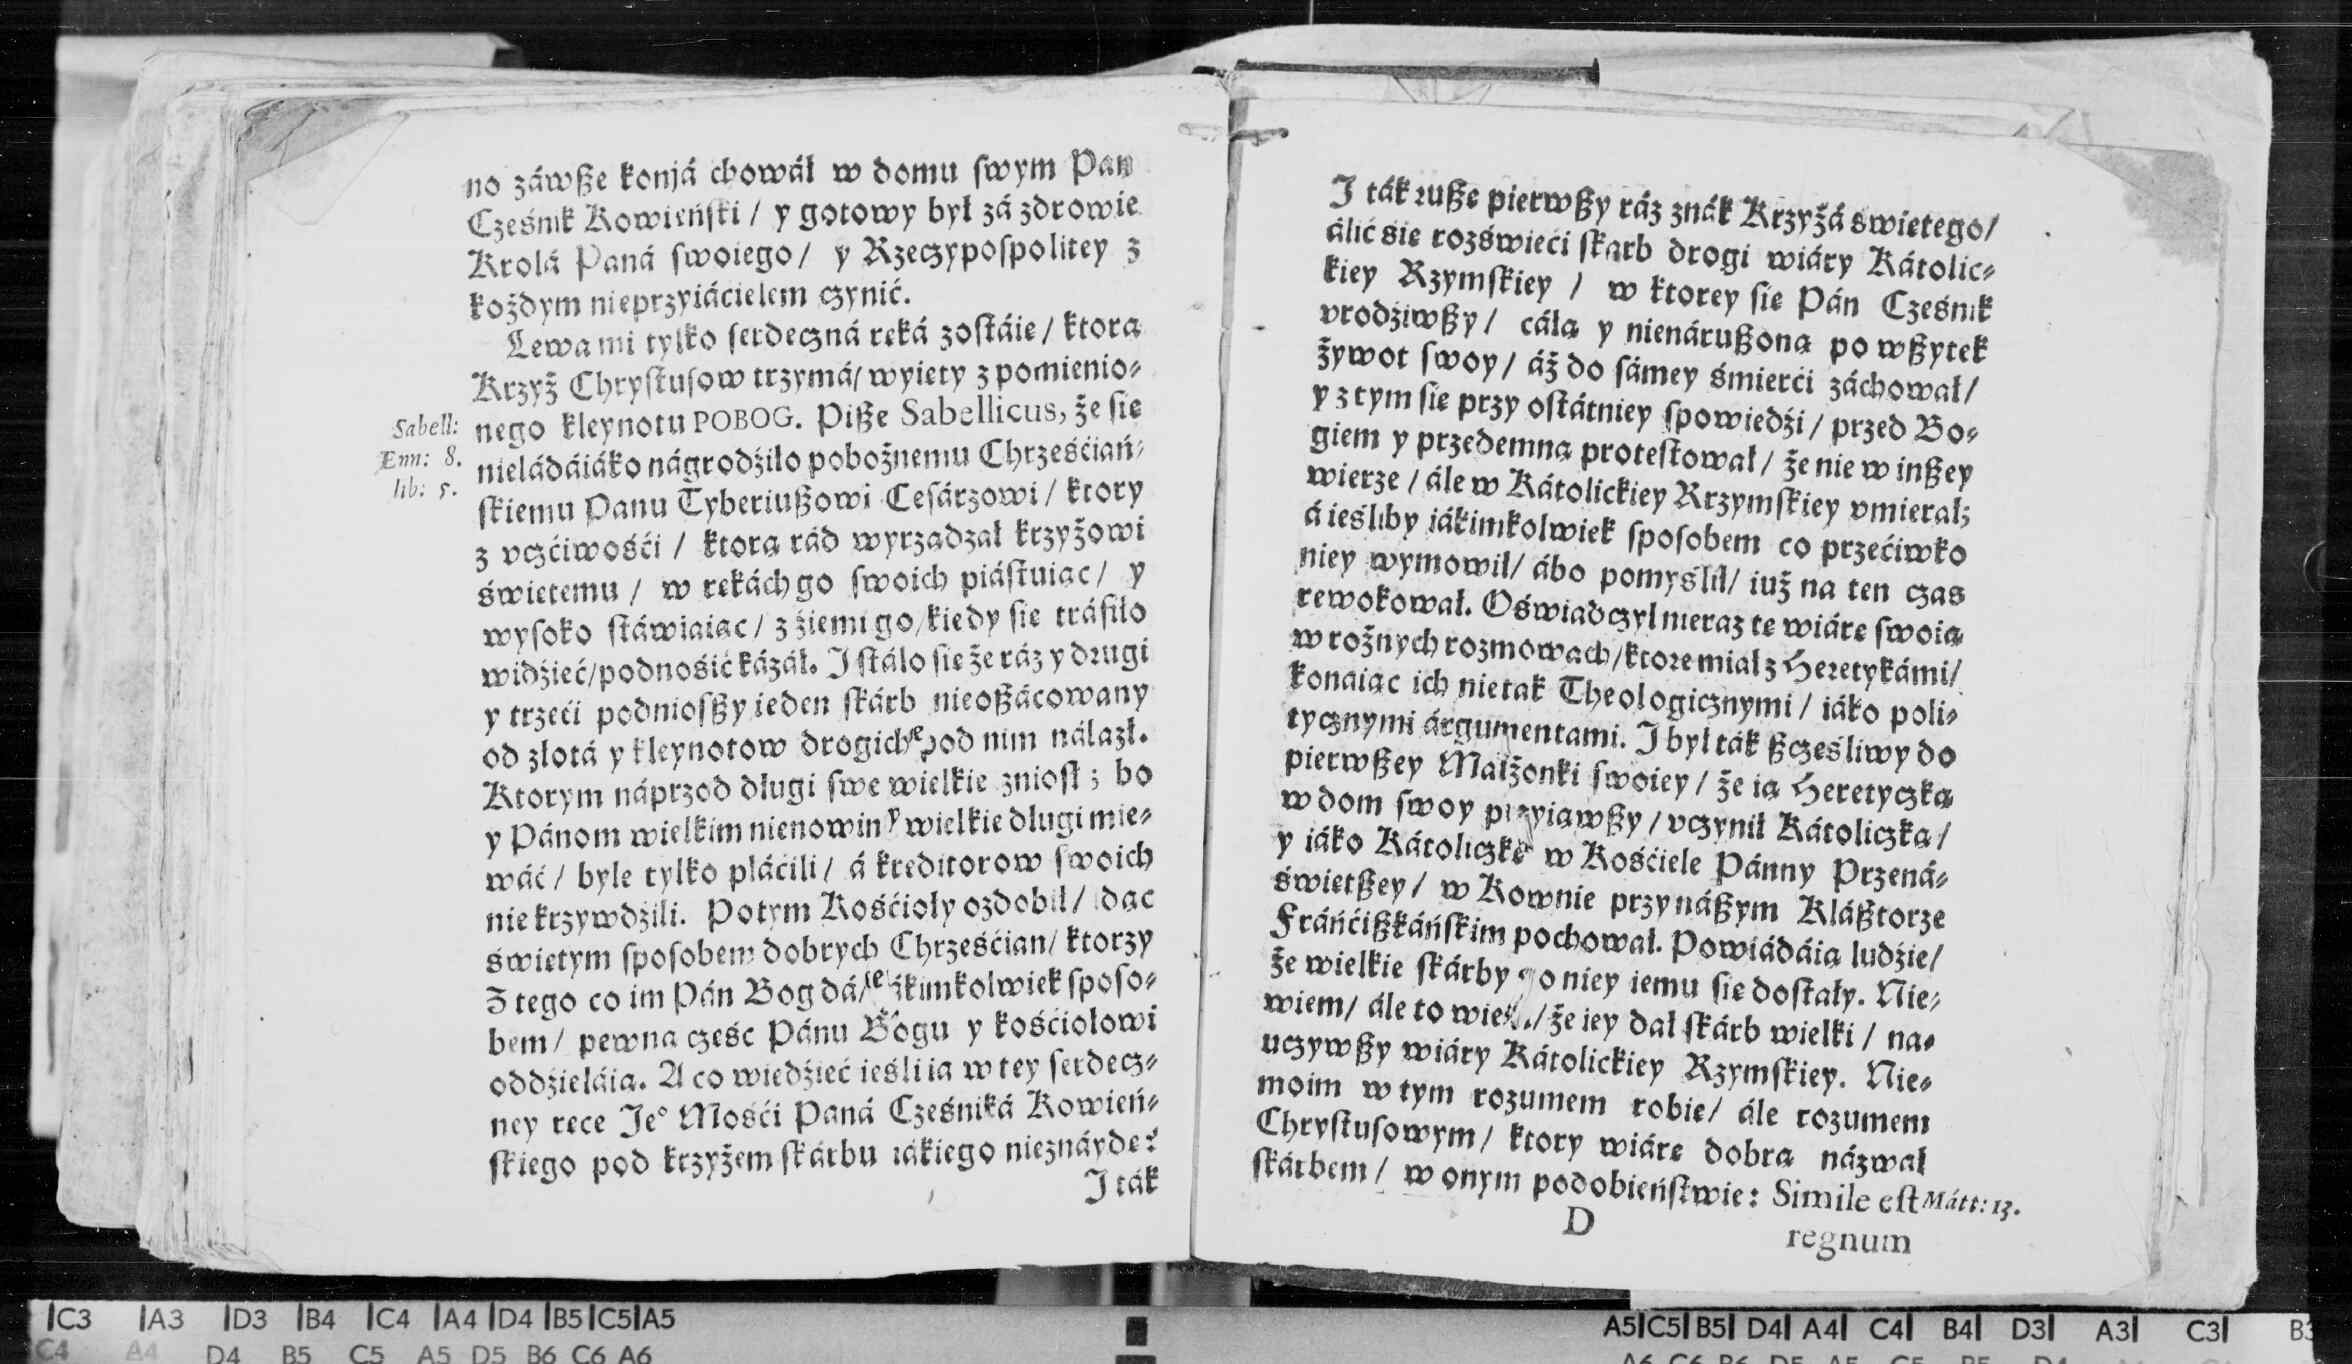 no záwße konjá chowáł w domu ſwym Pan
Cześnik Kowieńſki / y gotowy był zá zdrowie
Krolá Paná ſwoiego / y Rzeczypoſpolitey z
kożdym nieprzyiácielem czynić.
Lewa mi tylko ſerdeczná reká zoſtáie / ktora
Krzyż Chryſtuſow trzymá / wyiety z pomienio⸗
nego kleynotu POBOG. Piße Sabellicus, że ſie
Sabell:
Ænn: 8.
lib: 5.
nieládáiáko nágrodźiło pobożnemu Chrześćiań⸗
ſkiemu Panu Tyberiußowi Ceſárzowi / ktory
z vczćiwośći / ktora rád wyrzadzał krzyżowi
świetemu / w rekách go ſwoich piáſtuiac / y
wyſoko ſtáwiaiac / z źiemi go / kiedy ſie tráfiło
widźieć / podnośić kázáł. J ſtáło ſie że ráz y drugi
y trzeći podnioſßy ieden ſkárb nieoßácowany
od złotá y kleynotow drogich pod nim nálazł.
Ktorym náprzod długi ſwe wielkie znioſł ; bo
y Pánom wielkim nienowiny wielkie długi mie⸗
wáć / byle tylko płáćili / á kreditorow ſwoich
nie krzywdźili. Potym Kośćioły ozdobił / idac
świetym ſpoſobem dobrych Chrześćian / ktorzy
Z tego co im Pán Bog dá / iákimkolwiek ſpoſo⸗
bem / pewna cześc Pánu Bogu y kośćiołowi
oddźieláia. A co wiedźieć ieśli ia w tey ſerdecz⸗
ney rece Jeº Mośći Paná Cześniká Kowień⸗
ſkiego pod krzyżem ſkárbu iákiego nieznáyde?
J ták
J ták ruße pierwßy ráz znák Krzyżá swietego /
álić śie rozświeći ſkarb drogi wiáry Kátolic⸗
kiey Rzymſkiey / w ktorey ſie Pán Cześnik
vrodźiwßy / cáła y nienárußona po wßytek
żywot ſwoy / áż do ſámey śmierći záchował /
y z tym ſie przy oſtátniey ſpowiedźi / przed Bo⸗
giem y przedemna proteſtował / że nie w inßey
wierze / ále w Kátolickiey Rrzymſkiey vmierał;
á ieśliby iákimkolwiek ſpoſobem co przećiwko
niey wymowił / ábo pomyślił / iuż na ten czas
rewokował. Oświadczył nieraz te wiáre ſwoia
w rożnych rozmowach / ktore miał z Heretykámi /
konaiac ich nie tak Theologicznymi / iáko poli⸗
tycznymi árgumentami. J był ták ßcześliwy do
pierwßey Małżonki ſwoiey / że ia Heretyczka
w dom ſwoy przyiawßy / vczynił Kátoliczka /
y iáko Kátoliczke w Kośćiele Pánny Przená⸗
świetßey / w Kownie przy náßym Kláßtorze
Fránćißkáńſkim pochował. Powiádáia ludźie /
że wielkie ſkárby po niey iemu ſie doſtały. Nie⸗
wiem / ále to wiem / że iey dał ſkárb wielki / na⸗
uczywßy wiáry Kátolickiey Rzymſkiey. Nie⸗
moim w tym rozumem robie / ále rozumem
Chryſtuſowym / ktory wiáre dobra názwał
ſkárbem / w onym podobieńſtwie: Simile eſt
Mátt: 13.
D
regnum
C3 A3 D3 B4 C4 A4 D4 B5 C5 A5
C4 A4 D4 B5 C5 A5 D5 B6 C6 A6
A5 C5 B5 D4 A4 C4 B4 D3 A3 C3 B3